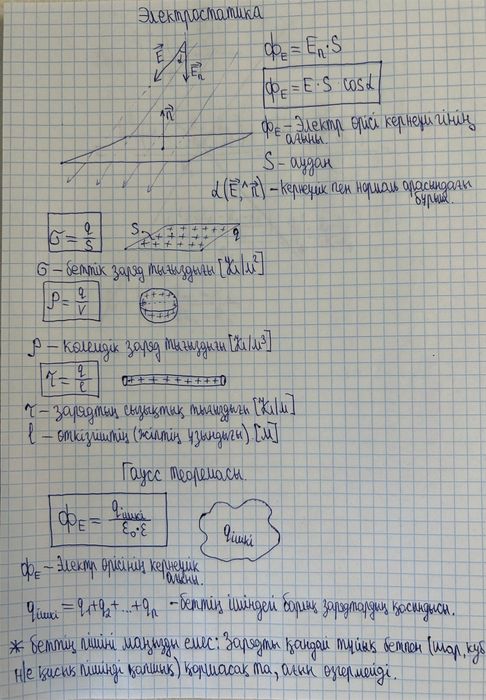 Электростатика
Ē α Ēn
ФE = En·S
ФE = E·S cosα
n
ФE – Электр өрісі кернеулігінің
ағыны.
S – аудан
α(E,^n) – кернеулік пен нормаль арасындағы
бұрыш.
σ = q/S
S q
σ – беттік заряд тығыздығы [Кл/м²]
ρ = q/V
ρ – көлемдік заряд тығыздығы [Кл/м³]
τ = q/l
τ – зарядтың сызықтық тығыздығы [Кл/м]
l – өткізгіштің (жіптің ұзындығы) [м]
Гаусс теоремасы.
ФE = qішкі/ε₀·ε
qішкі
ФE – Электр өрісінің кернеулік
ағыны.
qішкі = q1+q2+...+qn – беттің ішіндегі барлық зарядтардың қосындысы.
* беттің пішіні маңызды емес: Зарядты қандай тұйық бетпен (шар, куб
н/е қисық пішінді қапшық) қоршасақ та, ағын өзгермейді.